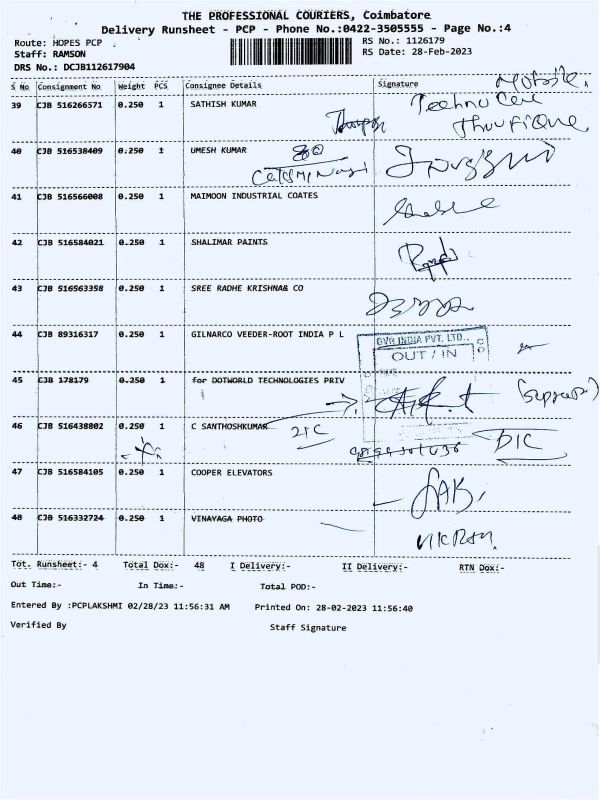 THE PROFESSIONAL COURIERS, Coimbatore
Delivery Runsheet - PCP - Phone No.:0422-3505555 - Page No.:4
Route: HOPES PCP
Staff: RAMSON
DRS No.: DCJB112617904
RS No.: 1126179
RS Date: 28-Feb-2023
S No Consignment No Weight PCS Consignee Details Signature
39 CJB 516266571 0.250 1 SATHISH KUMAR
Mobile.
40 CJB 516538409 0.250 1 UMESH KUMAR
41 CJB 516566008 0.250 1 MAIMOON INDUSTRIAL COATES
42 CJB 516584021 0.250 1 SHALIMAR PAINTS
43 CJB 516563358 0.250 1 SREE RADHE KRISHNA& CO
44 CJB 89316317 0.250 1 GILNARCO VEEDER-ROOT INDIA P L
GVR INDIA PVT. LTD.,
OUT / IN
45 CJB 178179 0.250 1 for DOTWORLD TECHNOLOGIES PRIV
46 CJB 516438802 0.250 1 C SANTHOSHKUMAR
47 CJB 516584105 0.250 1 COOPER ELEVATORS
48 CJB 516332724 0.250 1 VINAYAGA PHOTO
VIKRAM
Tot. Runsheet:- 4 Total Dox:- 48 I Delivery:- II Delivery:- RTN Dox:-
Out Time:- In Time:- Total POD:-
Entered By :PCPLAKSHMI 02/28/23 11:56:31 AM Printed On: 28-02-2023 11:56:40
Verified By Staff Signature